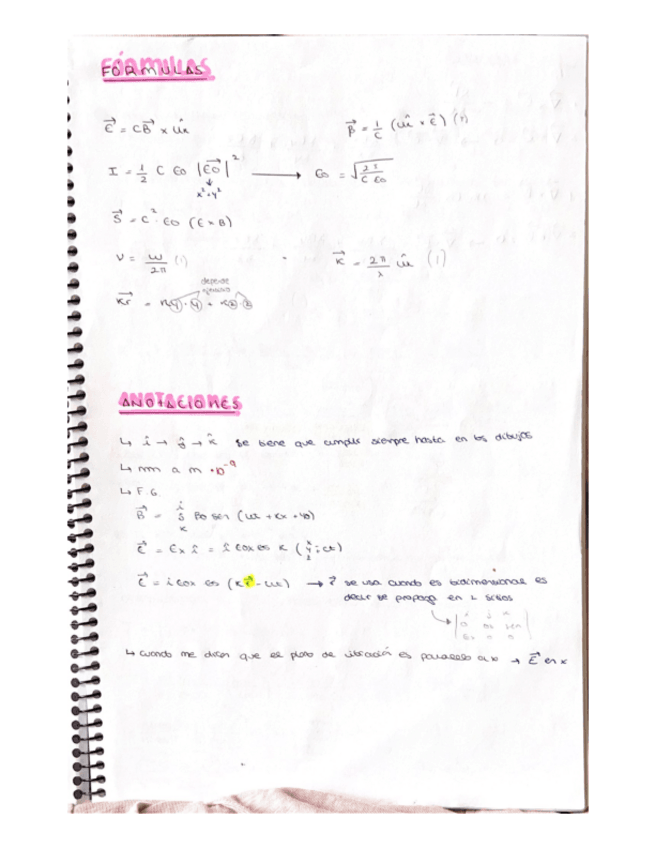 FÓRMULAS
E⃗ = CB⃗ x ûx
B⃗ = 1/C (ûx × E⃗) (T)
I = 1/2 C Eo |E⃗O|² → Eo = √(2I / C Eo)
x²+y²
S⃗ = C² · Eo (E × B)
V = ω/2π (1)
K⃗ = 2π/λ û (1)
depende
K⃗r = ky · y + kz · z
ANOTACIONES
↳ î → ĵ → k̂ Se tiene que cumplir siempre hasta en los dibujos
↳ nm a m · 10⁻⁹
↳ F.G.
i
B⃗ = j Bo sen (ωt + kx + φ0)
k
E⃗ = Ex î = î Eox cos k (x y z ; ct)
E⃗ = i Eox cos (k r⃗ - ωt) → r⃗ se usa cuando es bidimensional es
decir se propaga en 2 sitios
i j k
0 cos sen
Ex 0 0
↳ Cuando me dicen que el plano de vibración es paralelo al x → E⃗ en x